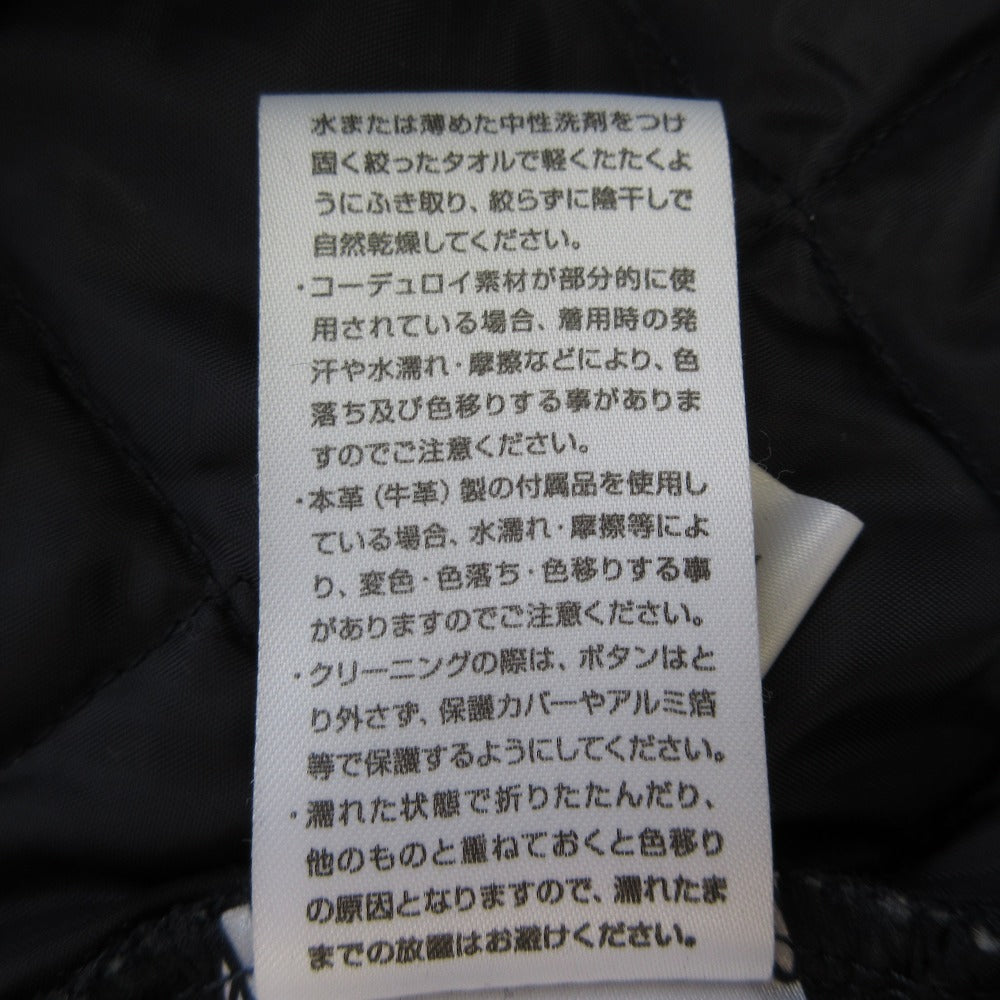 水または薄めた中性洗剤をつけ
固く絞ったタオルで軽くたたくよ
うにふき取り、絞らずに陰干しで
自然乾燥してください。
・コーデュロイ素材が部分的に使
用されている場合、着用時の発
汗や水濡れ・摩擦などにより、色
落ち及び色移りする事がありま
すのでご注意ください。
・本革(牛革)製の付属品を使用し
ている場合、水濡れ・摩擦等によ
り、変色・色落ち・色移りする事
がありますのでご注意ください。
・クリーニングの際は、ボタンはと
り外さず、保護カバーやアルミ箔
等で保護するようにしてください。
・濡れた状態で折りたたんだり、
他のものと重ねておくと色移り
の原因となりますので、濡れたま
までの放置はお避けください。